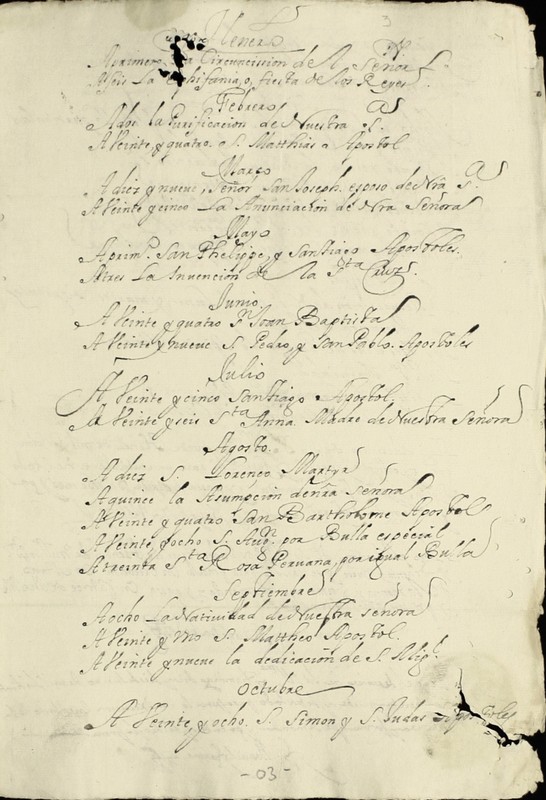 Henero
A primero La Circuncission del Señor
A seis La Ephifania, o, fiesta de los Reyes.
Febrero
A dos la Purificacion de Nuestra Sª.
A Veinte, y quatro. a S. Matthias Apostol
Março
A diez y nueve, Señor San Joseph. esposo de Nrâ Sª.
A Veinte y cinco La Anunciacion de Nra Señora
Mayo
A prim.º San Phelippe, y Santiago Apostoles.
A tres La Invencion de la Sta Cruz.
Junio
A Veinte y quatro Sn Joan Baptista
A Veinte, y nueve S. Pedro, y San Pablo. Apostoles
Julio
A Veinte y cinco Santiago Apostol.
A Veinte y seis Sta Anna. Madre de Nuestra Señora
Agosto.
A diez S. Lorenço Martyr
A quince la Asumpcion de nrâ señora
A Veinte y quatro San Bartholome Apostol
A Veinte, y ocho S. Augn. por Bulla especial
A treinta Sta Rosa Peruana, por igual Bulla
Septiembre
A ocho La Natividad de Nuestra señora
A Veinte y Vno S. Mattheo Apostol.
A Veinte y nueve la dedicacion de S. Migl.
Octubre
A Veinte, y ocho. S. Simon y S. Judas Apostoles
- 03 -